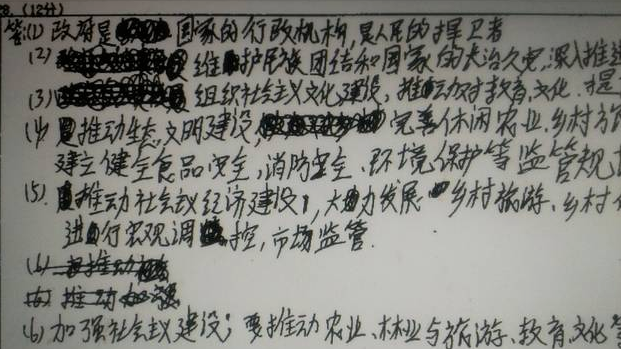 8. (12分)
答:(1) 政府是国家的行政机构,是人民的捍卫者
(2) 维护民族团结和国家的长治久安,深入推进
(3) 组织社会主义文化建设,推动对教育、文化、提
(4) 推动生态文明建设,完善休闲农业、乡村旅
建立健全食品安全,消防安全、环境保护等监管规
(5). 推动社会主义经济建设,大力发展乡村旅游、乡村
进行宏观调控,市场监管.
(6) 推动
推动
(6) 加强社会主义建设;要推动农业、林业与旅游、教育、文化等